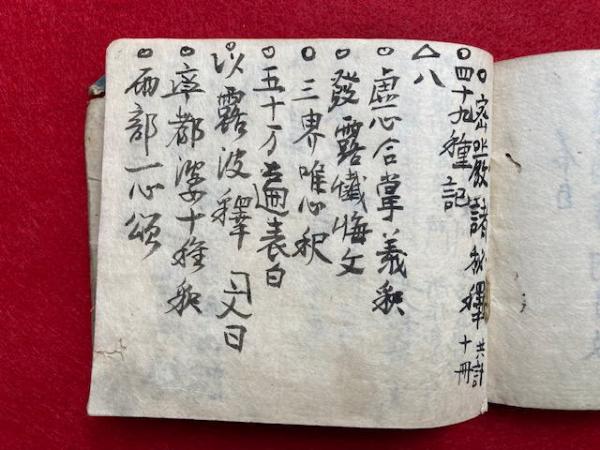 ○密嚴諸秘釋 共計十冊
○四十九種記
△八
○虚心合掌義釈
○發露懺悔文
○三界唯心釈
○五十万遍表白
○以露波釋
○率都婆十種釈
○両部一心頌